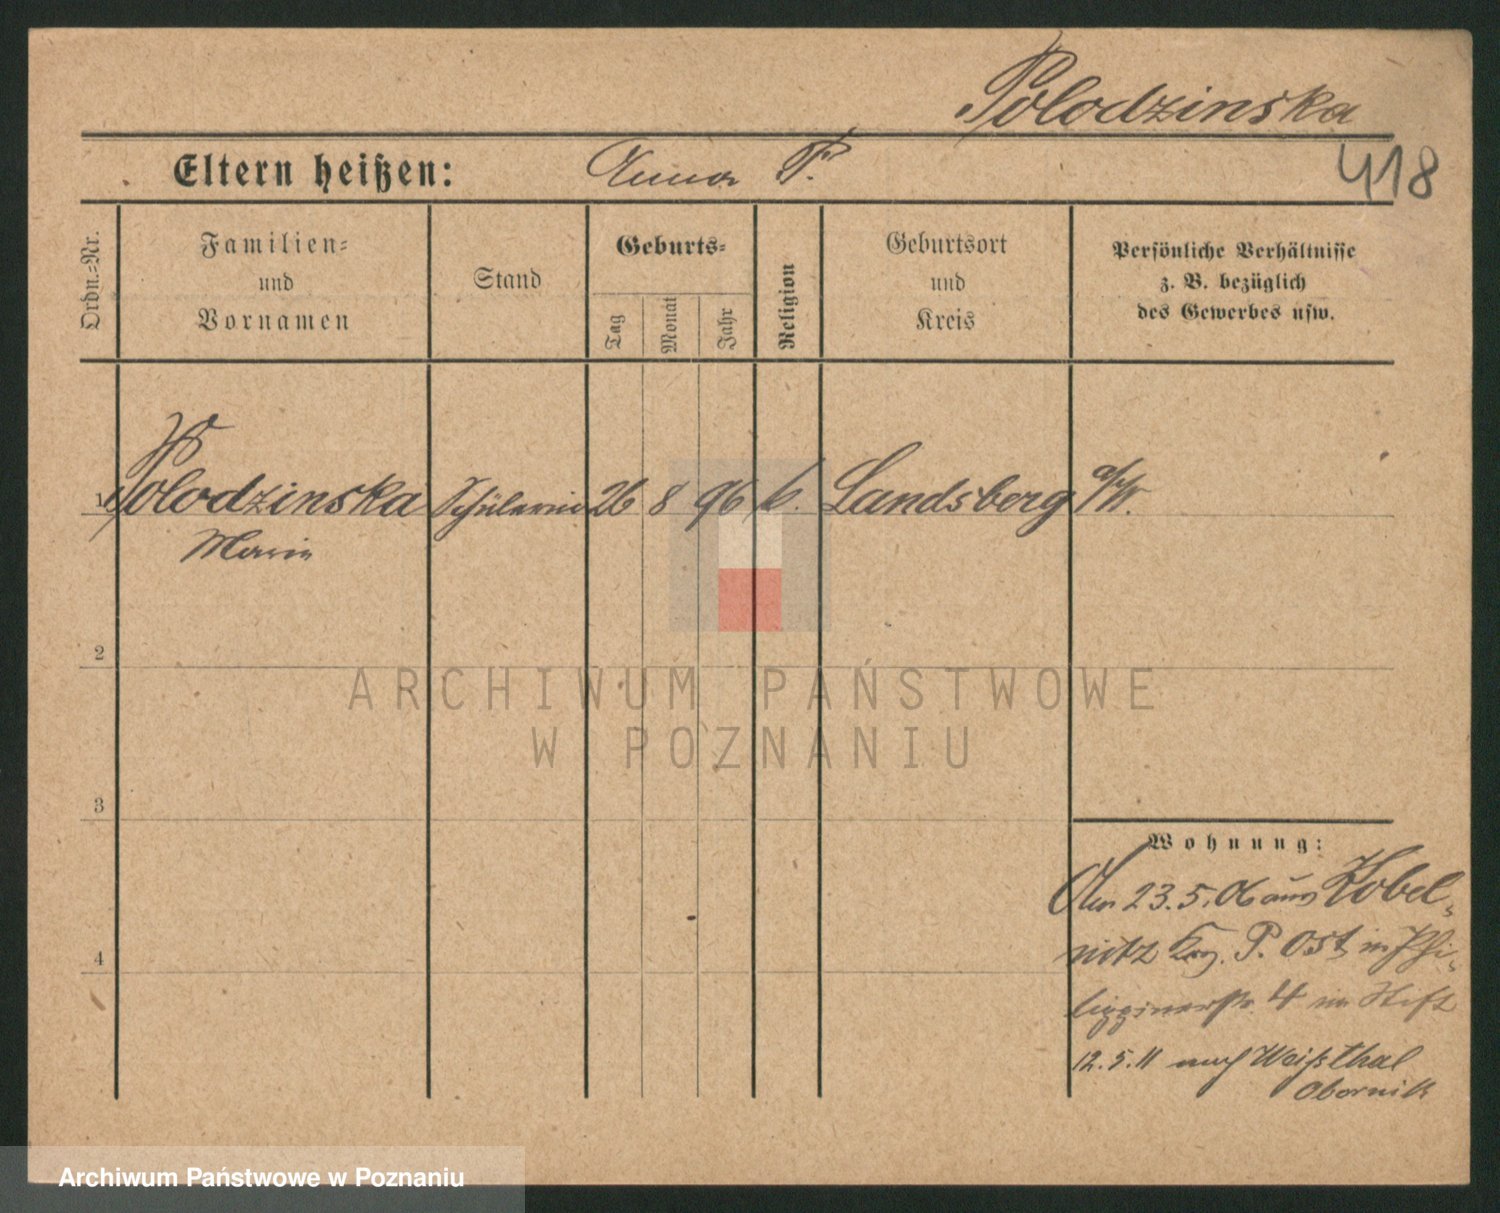 Polodzinska
Eltern heißen: Anna P.
418
Ordn.=Nr.
Familien=
und
Vornamen
Stand
Geburts=
Tag
Monat
Jahr
Religion
Geburtsort
und
Kreis
Persönliche Verhältnisse
z. B. bezüglich
des Gewerbes usw.
1 Polodzinska Schülerin 26 8 96 k. Landsberg a/W.
Marie
2
ARCHIWUM PAŃSTWOWE
W POZNANIU
3
Wohnung:
Am 23.5.06 aus Kobel=
nitz Krs. P. Ost in Phi=
lippinerstr. 4 im Stift
12.5.11 nach Weißthal
Obornik
4
Archiwum Państwowe w Poznaniu